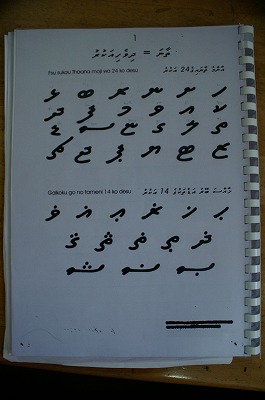 1
ތާނަ = ދިވެހިއަކުރު
Thaana moji wa 24 ko desu
24 އަކުރު
ހ ށ ނ ރ ބ ޅ
ކ އ ވ މ ފ ދ
ތ ލ ގ ޏ ސ ޑ
ޒ ޓ ޔ ޕ ޖ ޗ
Gaikoku go no tameni 14 ko desu
14 އަކުރު
ޙ ޚ ޜ ޢ ޣ ޥ
ޞ ޟ ޝ